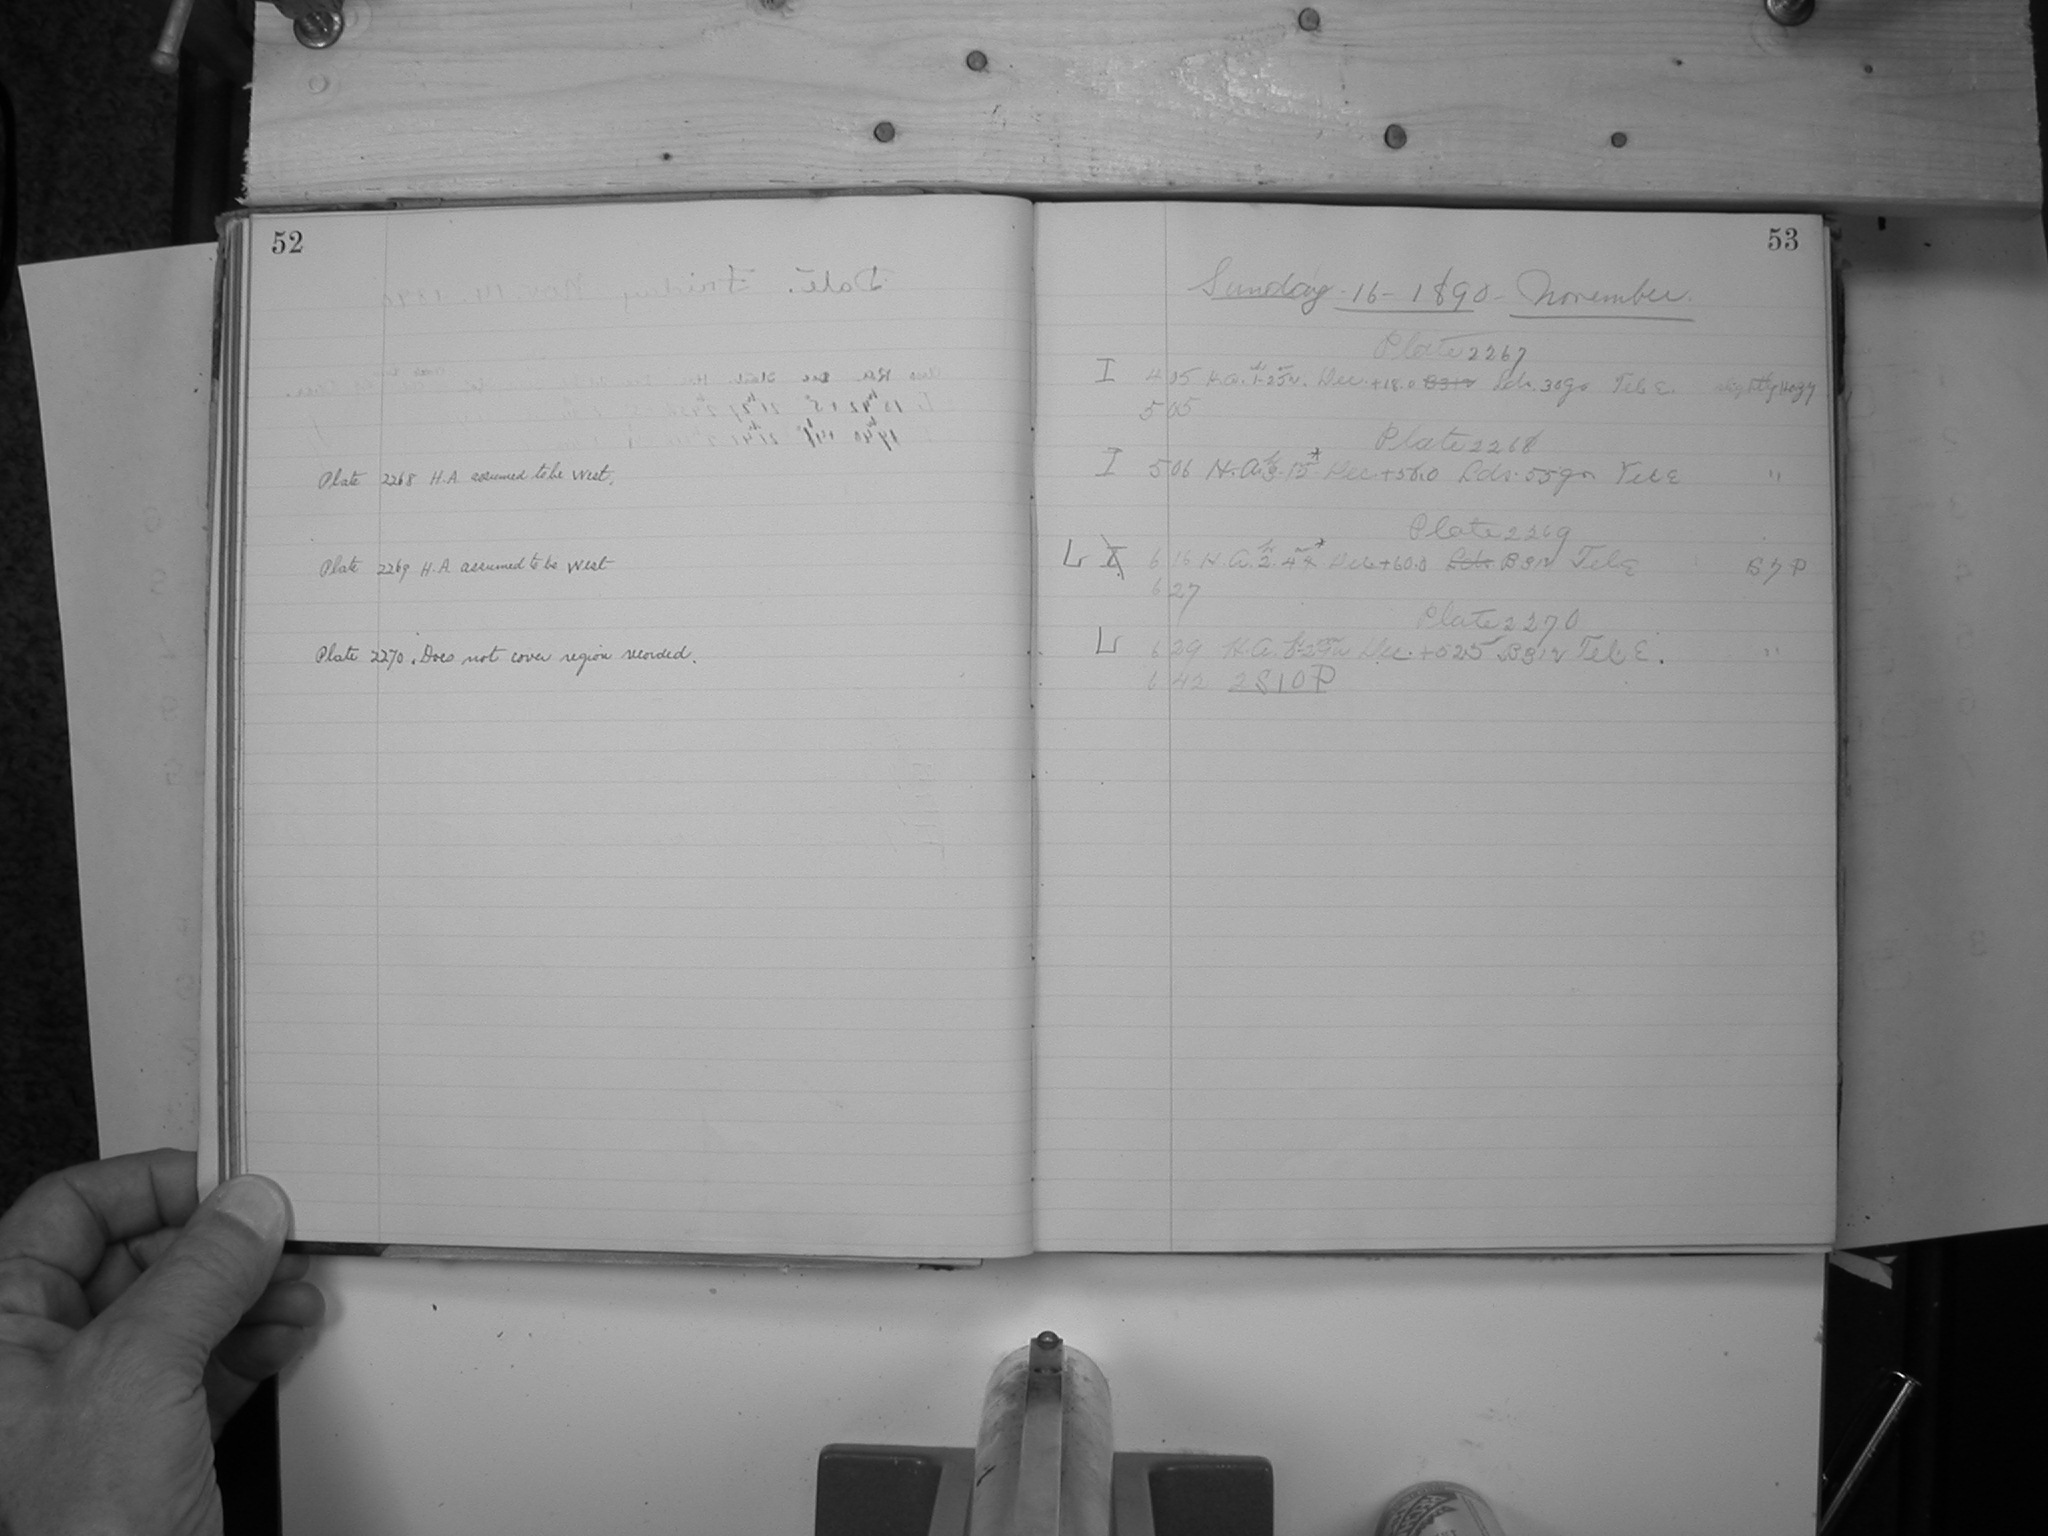 52
Plate 2268 H.A assumed to be West.
Plate 2269 H.A assumed to be West
Plate 2270. Does not cover region recorded.
53
Sunday - 16 - 1890 - November.
Plate 2267
I 4 05 H.A. Dec. +18.0 B312 Tel E. slightly Hazy
5 05
Plate 2268
I 5 06 H.A. Dec. +58.0 Tel E "
Plate 2269
L I 6 16 H.A. 2. 44* Dec +60.0 B312 Tel E S7P
6 27
Plate 2270
L 6 29 H.A. Dec. +52.5 B312 Tel E. "
6 42 2S10P